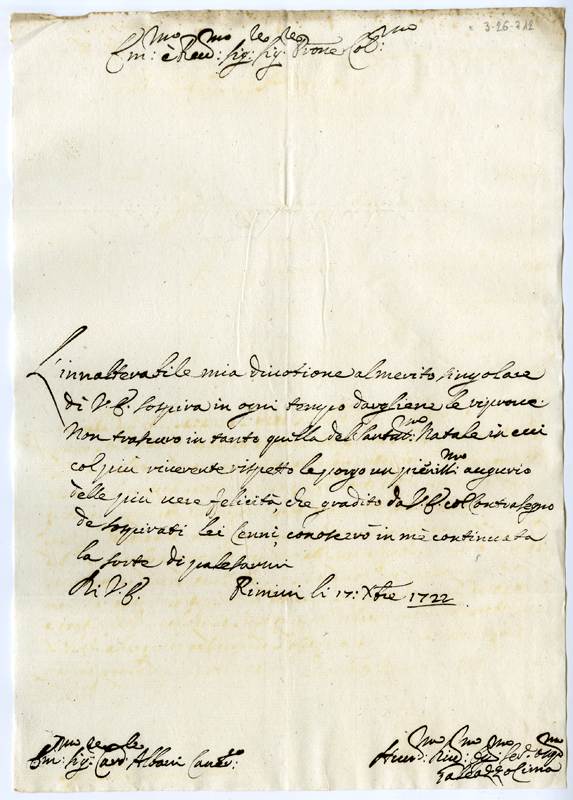 3-26-712
Em:mo è Reu:mo Sig:re Sig:re Prone Col:mo
L'innalterabile mia diuotione al merito singolare
di V.E. sospira in ogni tempo dargliene le riproue
Non trascuro in tanto quella del Santo Natale in cui
col più riuerente rispetto le porgo un augurio
delle più uere felicità, che gradito da V.E. col contrasegno
de sospirati lei Cenni, conoscerò in mè continuata
la sorte di palesarmi
Di V.E. Rimini li 17: Xbre 1722
Em:mo Sig:re Card:le Albani
Hum:mo Diu:mo Ser:re Oblmo
Galeazzo Cima